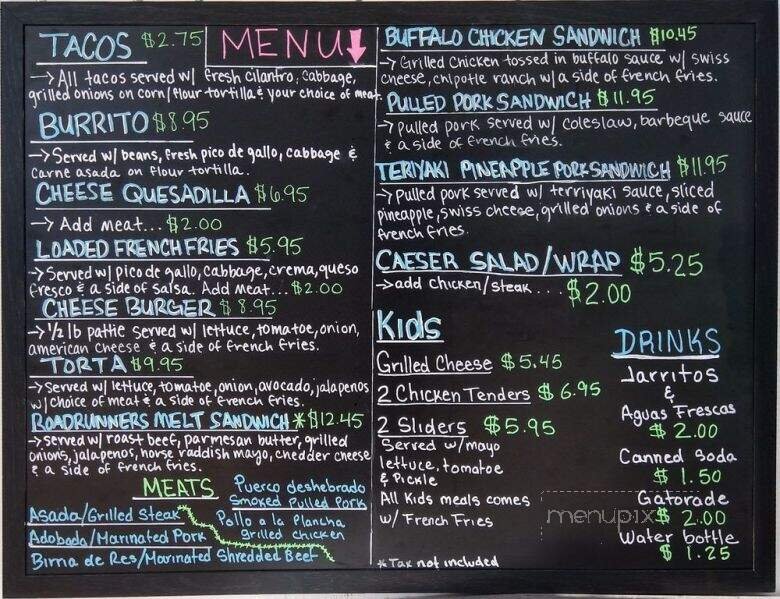 MENU
TACOS $2.75
→ All tacos served w/ fresh cilantro, cabbage,
grilled onions on corn/flour tortilla & your choice of meat.
BURRITO $8.95
→ Served w/ beans, fresh pico de gallo, cabbage &
carne asada on flour tortilla.
CHEESE QUESADILLA $6.95
→ Add meat... $2.00
LOADED FRENCH FRIES $5.95
→ Served w/ pico de gallo, cabbage, crema, queso
fresco & a side of salsa. Add Meat... $2.00
CHEESE BURGER $8.95
→ 1/2 lb pattie served w/ lettuce, tomatoe, onion,
american cheese & a side of french fries.
TORTA $9.95
→ Served w/ lettuce, tomatoe, onion, avocado, jalapenos
w/ choice of meat & a side of french fries.
ROADRUNNERS MELT SANDWICH * $12.45
→ Served w/ roast beef, parmesan butter, grilled
onions, jalapenos, horse raddish mayo, chedder cheese
& a side of french fries.
MEATS
Asada/Grilled Steak
Adobada/Marinated Pork
Birria de Res/Marinated Shredded Beef
Puerco deshebrado
Smoked Pulled Pork
Pollo a la Plancha
Grilled chicken
BUFFALO CHICKEN SANDWICH $10.45
→ Grilled Chicken tossed in buffalo sauce w/ swiss
cheese, chipotle ranch w/ a side of french fries.
PULLED PORK SANDWICH $11.95
→ Pulled pork served w/ coleslaw, barbeque sauce
& a side of french fries.
TERIYAKI PINEAPPLE PORK SANDWICH $11.95
→ Pulled pork served w/ terriyaki sauce, sliced
pineapple, swiss cheese, grilled onions & a side of
french fries.
CAESER SALAD/WRAP $5.25
→ add chicken/steak... $2.00
Kids
Grilled Cheese $5.45
2 Chicken Tenders $6.95
2 Sliders $5.95
Served w/mayo
lettuce, tomatoe
& Pickle
All Kids meals comes
w/ French Fries
* Tax not included
DRINKS
Jarritos
&
Aguas Frescas
$2.00
Canned Soda
$1.50
Gatorade
$2.00
Water bottle
$1.25
menupix